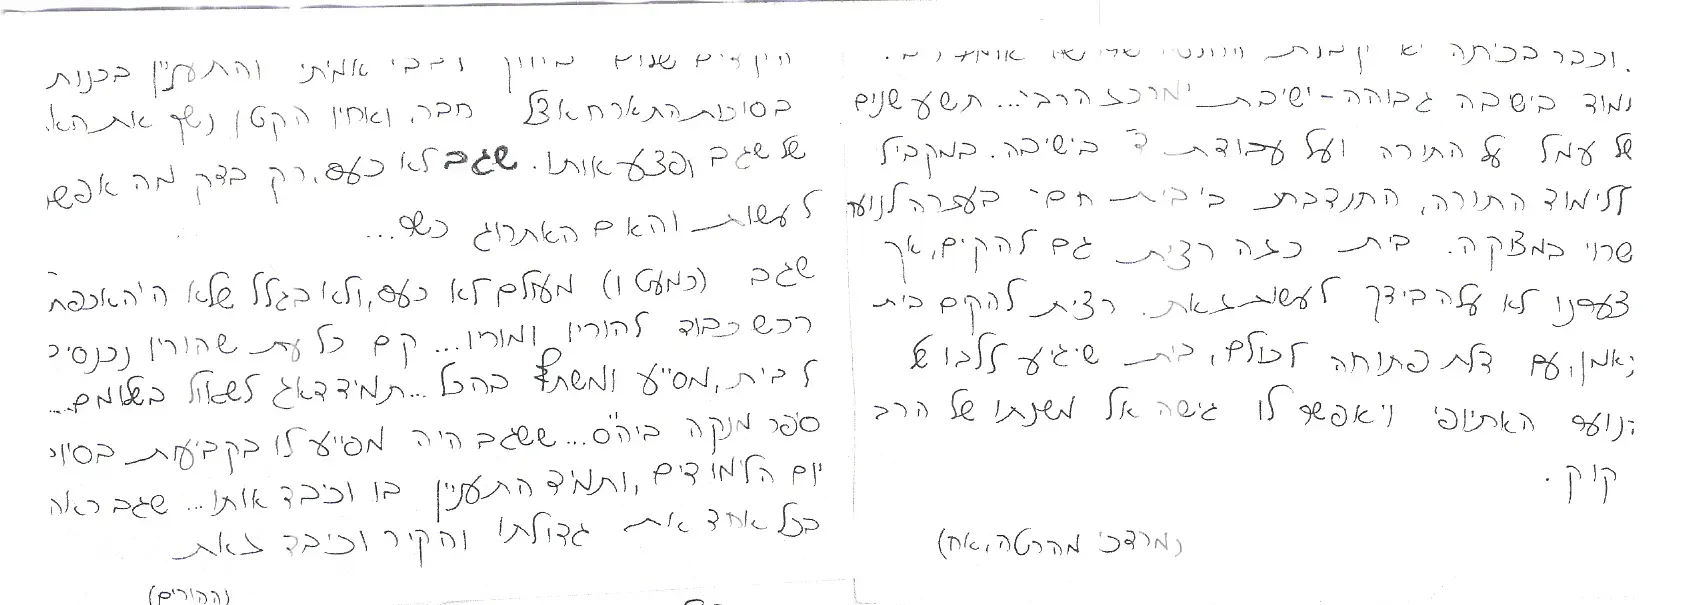 וכבר בכיתה יש
למוד בישבה גבוהה-ישיבת "מרכז הרב"... תשע שנים
של עמל על התורה ועל עבודת ד' בישיבה. במקביל
ללימוד התורה, התנדבת ב"בית חם" בעזרה לנוער
שרוי במצוקה. בית כזה רצית גם להקים, אך
לצערנו לא עלה בידך לעשות זאת. רצית להקים בית
נאמן, עם דלת פתוחה לכולם, בית שיגיע ללבו של
הנוער האתיופי ויאפשר לו גישה אל משנתו של הרב
קוק.
(מרדכי מהרטה, אח)
שונים אמיתי והתעניין בכנות
בסוכות התארח אצל חבר, ואחיו הקטן נשך את הא
של שגב ופצע אותו. שגב לא כעס, רק בדק מה אפשר
לעשות והאם האתרוג כשר...
שגב (כמעט ו) מעולם לא כעס, ולא בגלל שלא היה אכפת
רכש כבוד להוריו ומוריו... קם כל עת שהוריו נכנסים
לבית, מסייע ומשתף בהכל... תמיד דאג לשאול בשלומם...
סיפר מנקה ביה"ס... ששגב היה מסייע לו בקביעות בסיום
יום הלימודים, ותמיד התעניין בו וכיבד אותו... שגב ראה
בכל אחד את גדולתו והקיר וכיבד זאת
(ההורים)